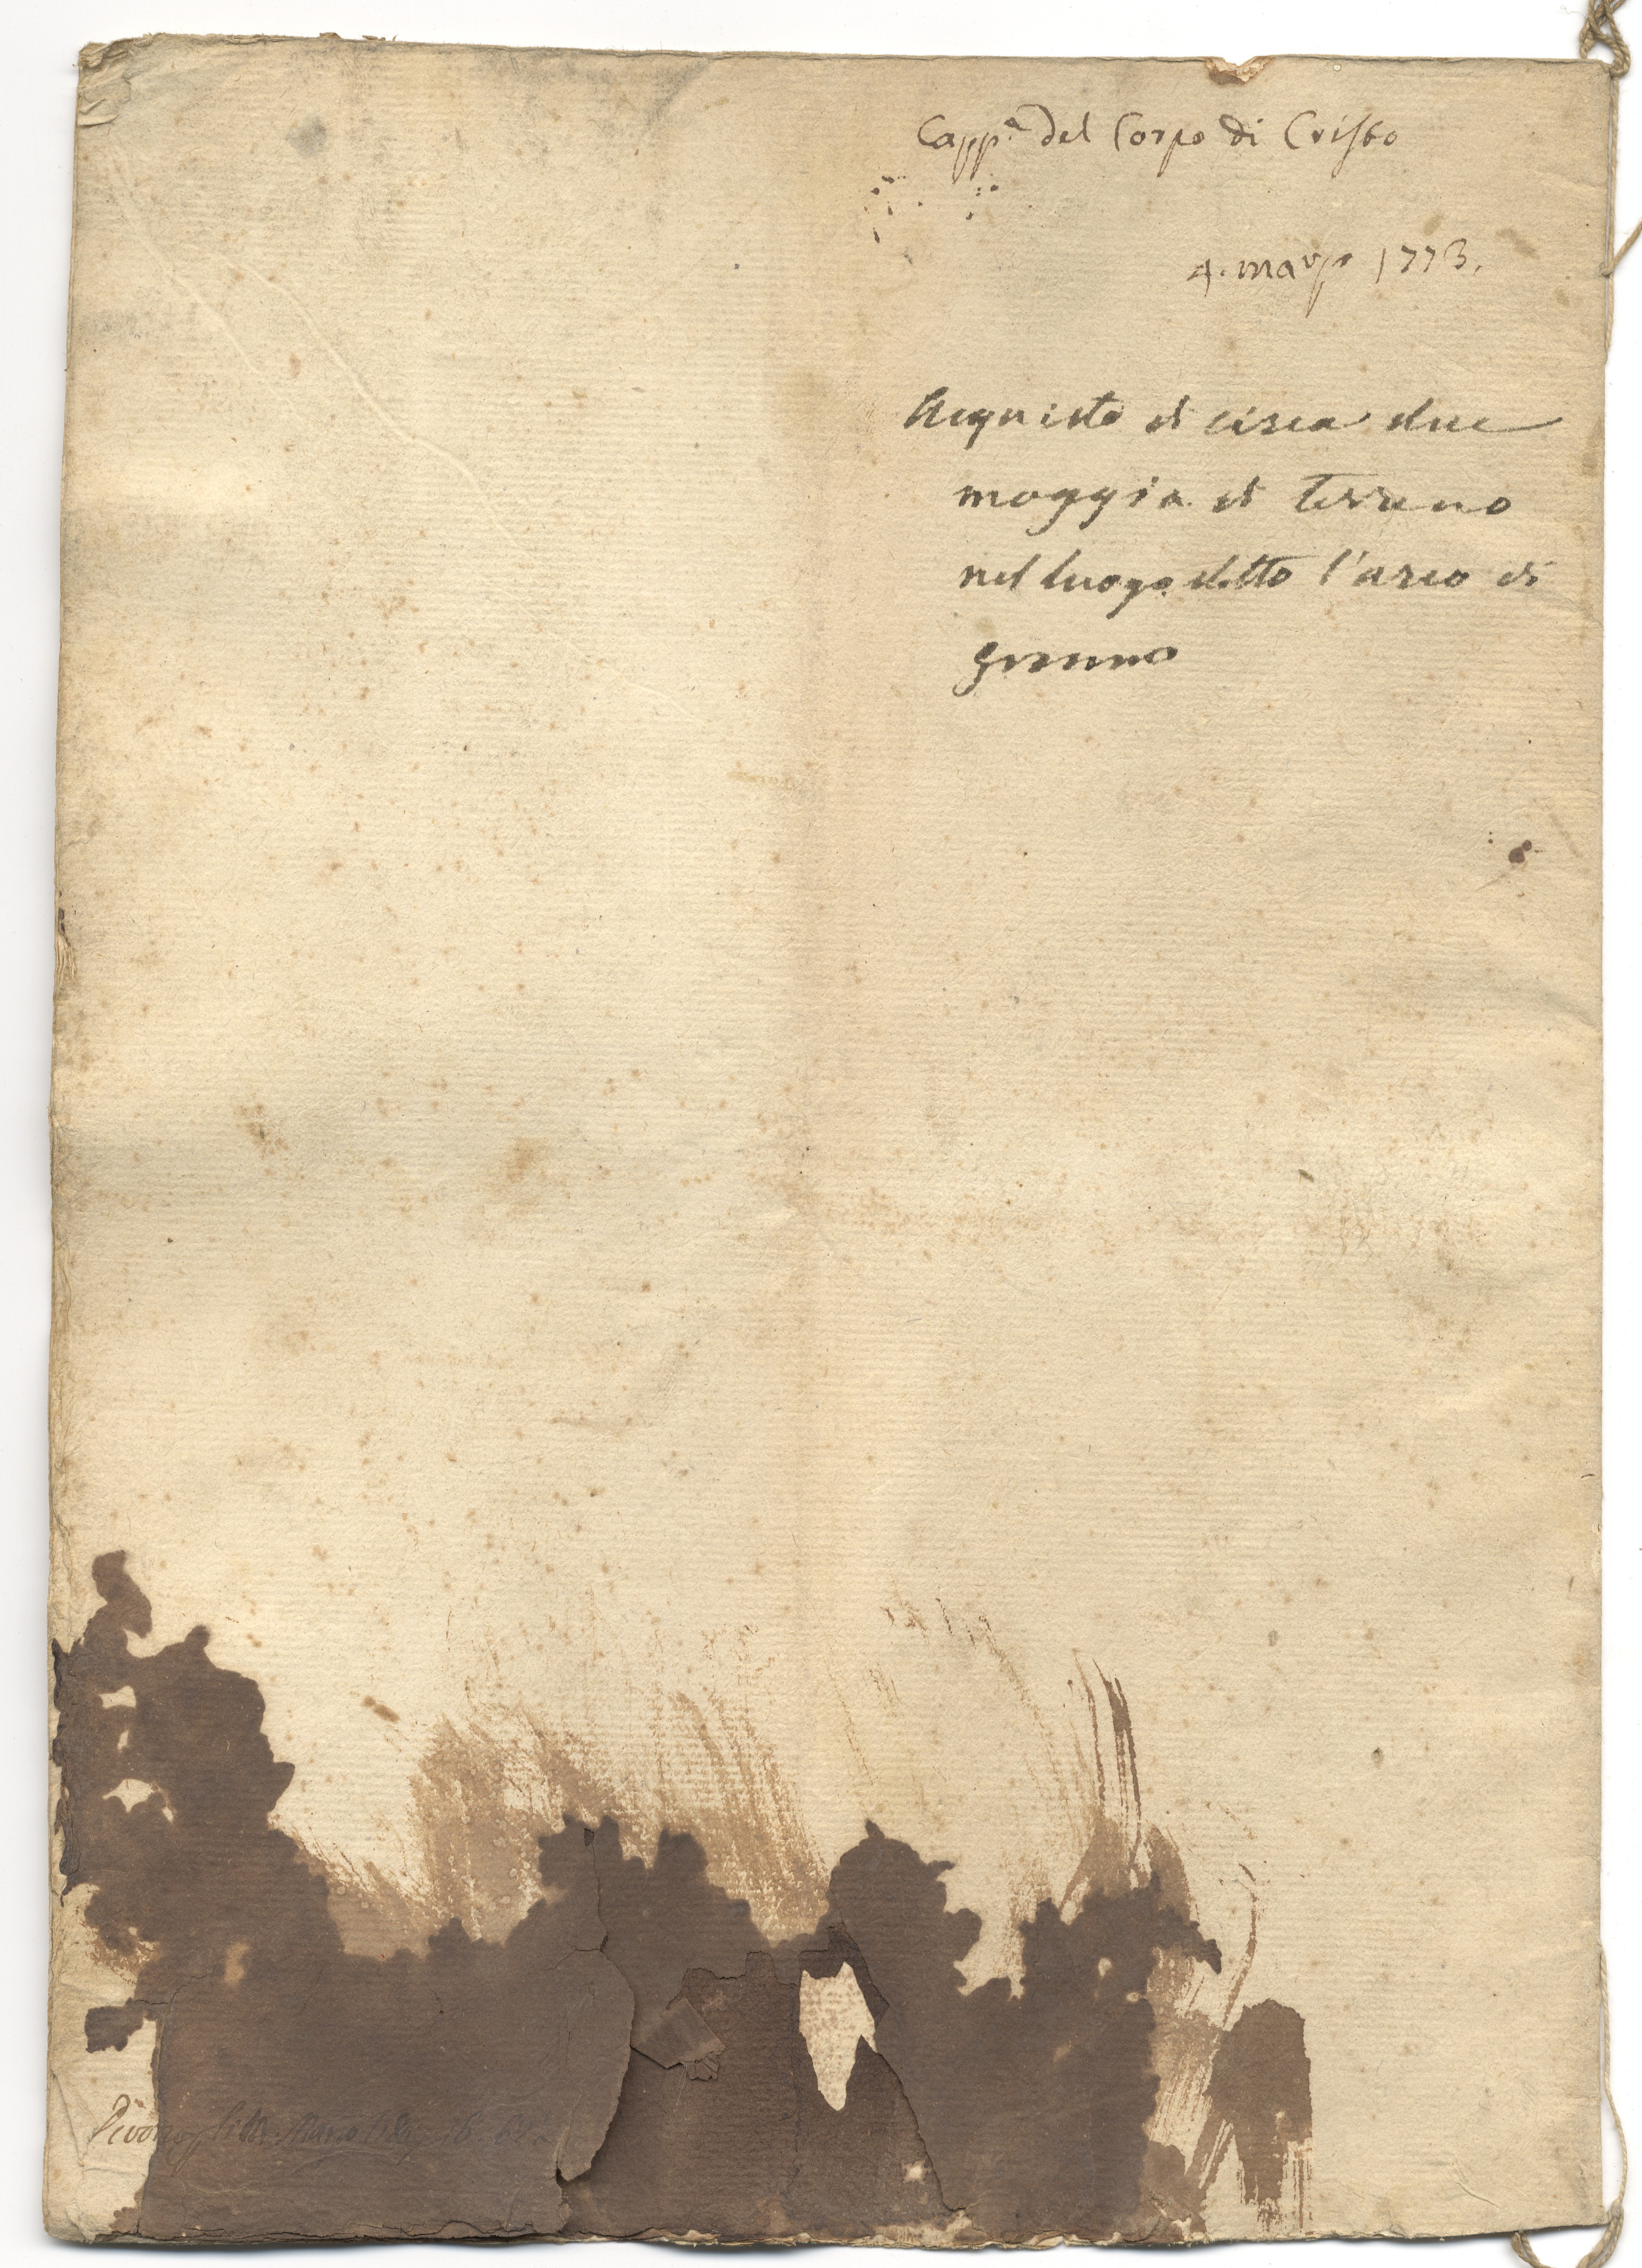 Capp.ª del Corpo di Cristo
4. marzo 1773.
Acquisto di circa due
moggia di terreno
nel luogo detto l'arco di